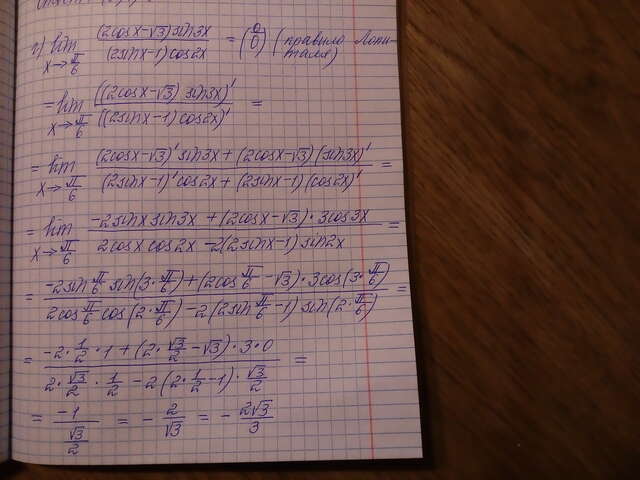 2) lim x→π/6 (2cosx-√3)sin3x / (2sinx-1)cos2x = (0/0) (правило Лопи-
таля)
= lim x→π/6 ((2cosx-√3) sin3x)' / ((2sinx-1) cos2x)' =
= lim x→π/6 (2cosx-√3)' sin3x + (2cosx-√3)(sin3x)' / (2sinx-1)' cos2x + (2sinx-1)(cos2x)' =
= lim x→π/6 -2sinx sin3x + (2cosx-√3)·3cos3x / 2cosx cos2x -2(2sinx-1) sin2x =
= -2sin π/6 sin(3·π/6) + (2cos π/6 - √3)·3cos(3·π/6) / 2cos π/6 cos(2·π/6) - 2(2sin π/6 -1) sin(2·π/6) =
= -2·1/2·1 + (2·√3/2 - √3)·3·0 / 2·√3/2·1/2 - 2(2·1/2-1)·√3/2 =
= -1 / √3/2 = - 2/√3 = - 2√3/3